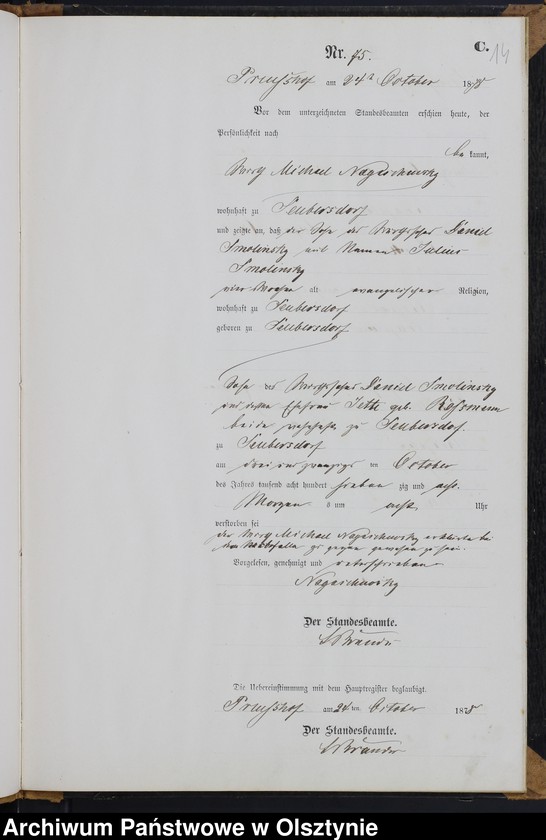 C. 14
Nr. 75.
Preußhof am 24ten October 1878
Vor dem unterzeichneten Standesbeamten erschien heute, der
Persönlichkeit nach
bekannt,
Michael
wohnhaft zu Teubersdorf
und zeigte an, daß der Sohn des Daniel
Smolinsky mit Namen Julius
Smolinsky
vier Wochen alt evangelischer Religion,
wohnhaft zu Teubersdorf
geboren zu Teubersdorf
Sohn des Daniel Smolinsky
und dessen Ehefrau geb. Rossmann
beide wohnhaft zu Teubersdorf.
zu Teubersdorf
am drei und zwanzigsten October
des Jahres tausend acht hundert siebenzig und acht.
Morgens um acht Uhr
verstorben sei
der Michael erklärte bei
dem gegen gewesen zu sein.
Vorgelesen, genehmigt und unterschrieben
Der Standesbeamte.
Die Uebereinstimmung mit dem Hauptregister beglaubigt.
Preußhof am 24ten October 1878
Der Standesbeamte.
Archiwum Państwowe w Olsztynie